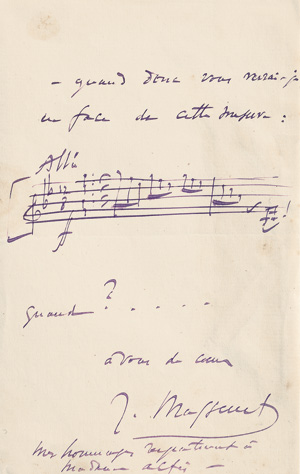 – quand donc vous verrai-je
en face de cette mesure :
All°
ff
!
quand ? . . . . .
à vous de cœur
J. Massenet
mes hommages respectueux à
Madame